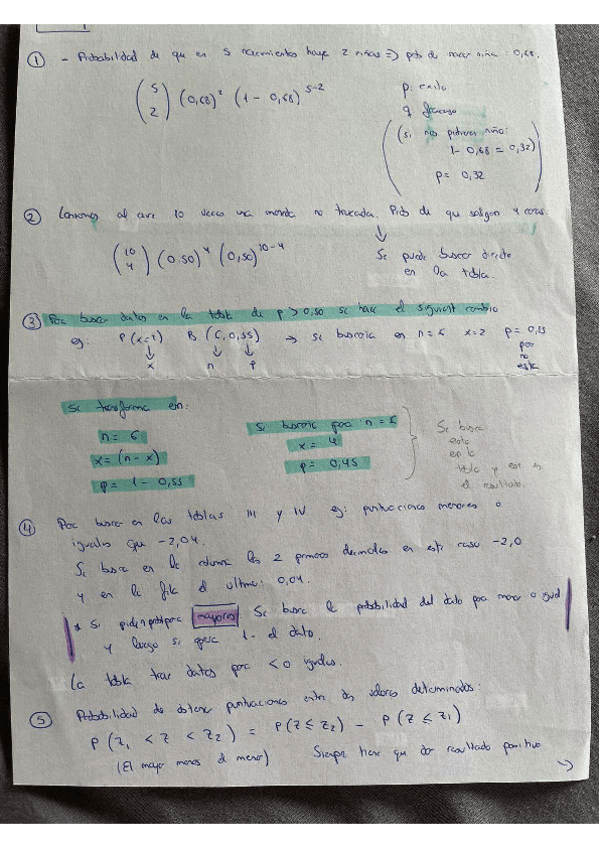 ① - Probabilidad de que en 5 nacimientos haya 2 niñas => prob de nacer niña: 0,68.
(5 2) (0,68)² (1 - 0,68)^5-2
p: exito
q fracaso
(si nos pidieran niño:
1 - 0,68 = 0,32)
p = 0,32
② Lanzamos al aire 10 veces una moneda no trucada. Prob de que salgan 4 caras.
(10 4) (0.50)^4 (0,50)^10-4
↓
Se puede buscar directo
en la tabla.
③ Para buscar datos en la tabla de p > 0,50 se hace el siguiente cambio
eg: P(x=2) B (6, 0,55) → se buscaria en n = 6 x=2 p = 0,55
↓ ↓ ↓
x n p
pero
no
esta
Se transforma en:
n = 6
x = (n - x)
p = 1 - 0,55
Se buscaria para: n = 6
x = 4
p = 0,45
Se busca
esto
en la
tabla y ese es
el resultado.
④ Para buscar en las tablas III y IV eg: puntuaciones menores o
iguales que -2,04.
Se busca en la columna los 2 primeros decimales en este caso -2,0
y en la fila el ultimo: 0,04.
* Si piden para mayores Se busca la probabilidad del dato para menor o igual
y luego se opera 1 - el dato.
La tabla trae datos para < o iguales.
⑤ Probabilidad de obtener puntuaciones entre dos valores determinados:
P (z₁ < z < z₂) = P (z ≤ z₂) - P (z ≤ z₁)
(El mayor menos el menor) Siempre tiene que dar resultado positivo